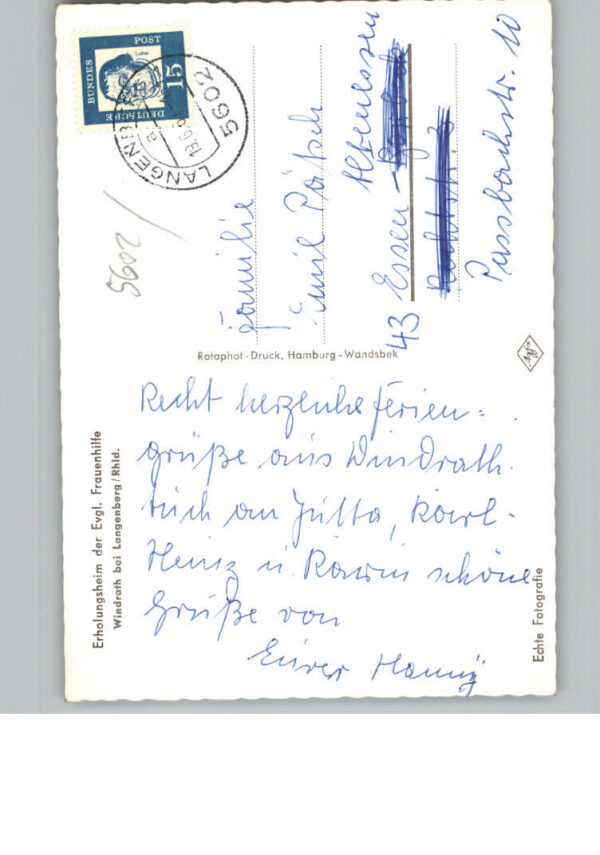 Erholungsheim der Evgl. Frauenhilfe
Windrath bei Langenberg/Rhld.
Recht herzliche Ferien=
grüße aus Windrath.
Auch an Jutta, Karl-
Heinz u. Karin schöne
Grüße von
Eurer
Echte Fotografie
Rotaphot-Druck, Hamburg-Wandsbek
DEUTSCHE
BUNDES
POST
15
Luther
5602
LANGENBERG
5602
Familie
Emil
Altenessen
43 Essen
10